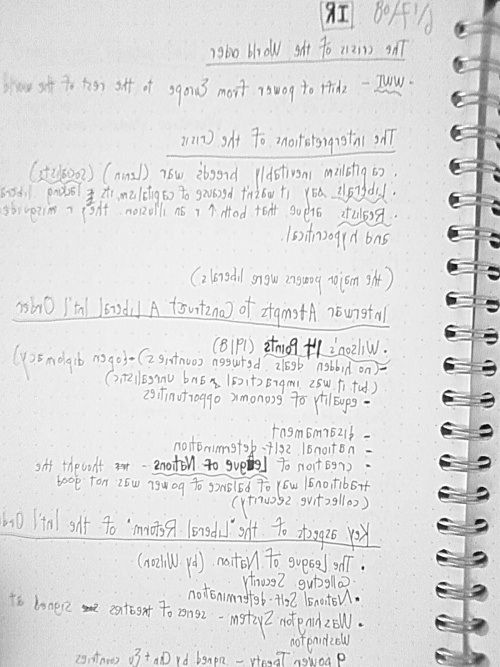 IR
The crisis of the World order
• WWI - shift of power from Europe to the rest of the world
The interpretations of the Crisis
• capitalism inevitably breeds war (Lenin) (socialists)
• Liberals say it wasn't because of capitalism, its lacking libera
• Realists argue that both ↑ r an illusion. they r misguided
and hypocritical.
(the major powers were liberals)
Interwar Attempts to Construct A Liberal Int'l Order
• Wilson's 14 Points (1918)
- (no hidden deals between countries) → (open diplomacy)
(but it was impractical and unrealistic)
- equality of economic opportunities
- disarmament
- national self-determination
- creation of League of Nations - thought the
traditional way of balance of power was not good
(collective security)
Key aspects of the "Liberal Reform" of the Int'l Ord
• The League of Nation. (by Wilson)
- Collective Security
• National Self-determination
• Washington System - series of treaties signed at
Washington
9 power Treaty - signed by Chn + Eu countries